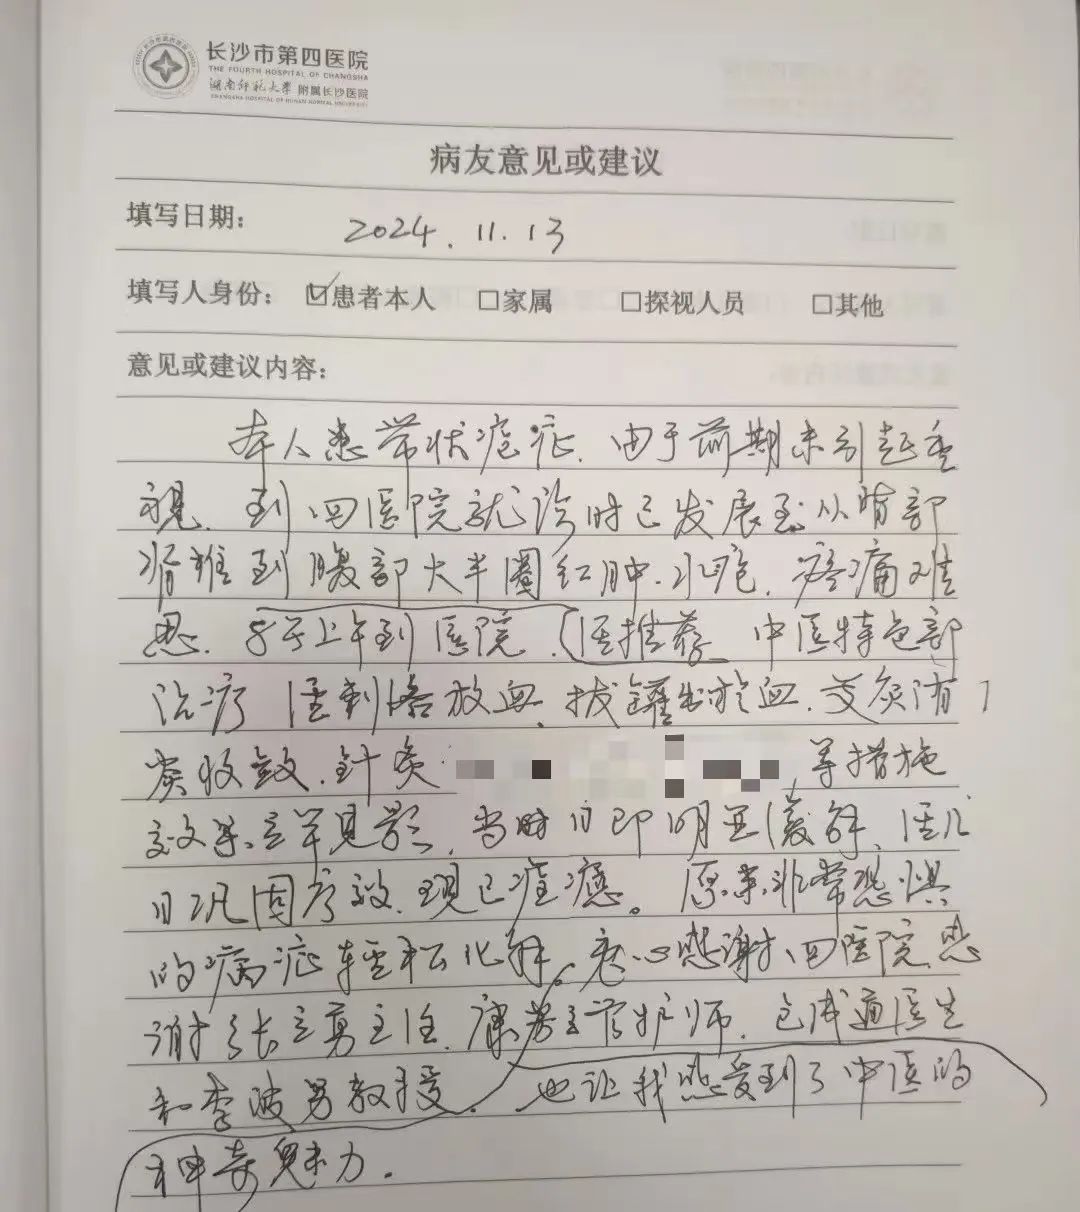 长沙市第四医院
THE FOURTH HOSPITAL OF CHANGSHA
湖南师范大学 附属长沙医院
CHANGSHA HOSPITAL OF HUNAN NORMAL UNIVERSITY
病友意见或建议
填写日期: 2024.11.13
填写人身份: ☑患者本人 □家属 □探视人员 □其他
意见或建议内容:
本人患带状疱症.由于前期未引起重
视.到四医院就诊时已发展至从背部
脊椎到腹部大半圈红肿.水疱.疼痛难
忍.8号上午到医院.(医推荐 中医特色部
治疗 经刺络放血.拔罐出淤血.艾灸
收敛.针灸 等措施
效果立竿见影.当时日即明显缓解.经几
日巩固疗效.现已痊癒。原来非常恐惧
的病症轻松化解。衷心感谢四医院.感
谢张立勇主任.康芳主管护师.
和李波男教授.也让我感受到了中医的
神奇魅力.